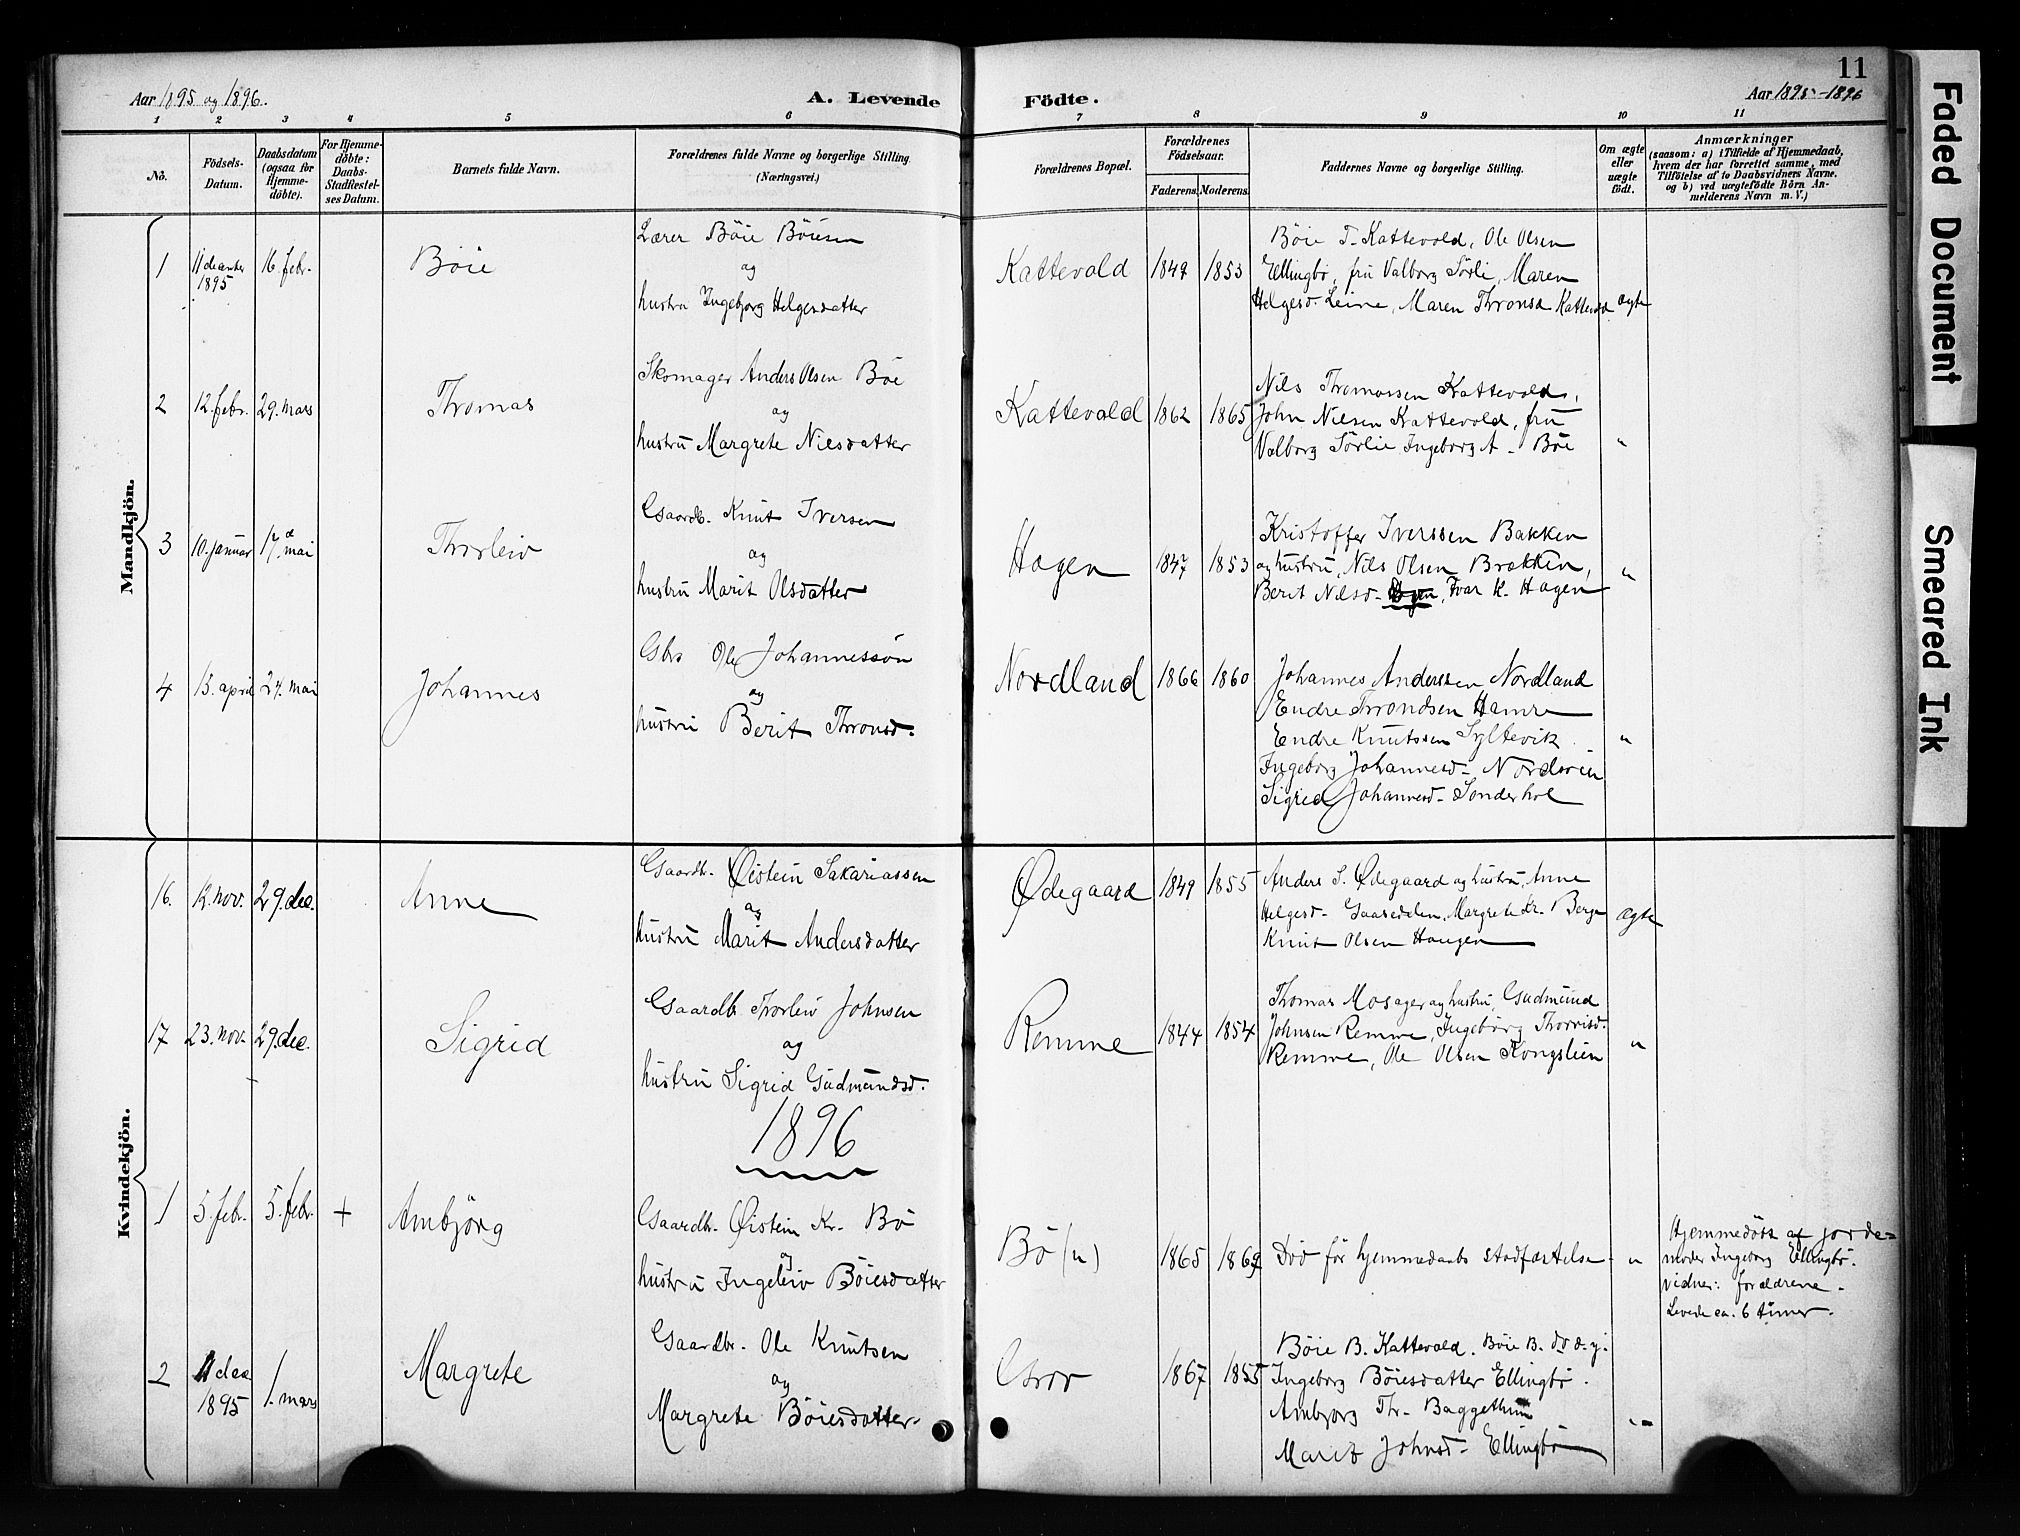 11
Aar 1895 og 1896.
A. Levende
Födte.
Aar 1895-1896
1 2 3 4 5 6 7 8 9 10 11
No.
Födsels-
Datum.
Daabsdatum
(ogsaa for
Hjemme-
döbte).
For Hjemme-
döbte:
Daabs-
Stadfæstel-
ses Datum.
Barnets fulde Navn.
Forældrenes fulde Navne og borgerlige Stilling.
(Næringsvei.)
Forældrenes Bopæl.
Forældrenes
Födselsaar.
Faderens. Moderens.
Faddernes Navne og borgerlige Stilling.
Om ægte
eller
uægte
födt.
Anmærkninger
(saasom: a) i Tilfælde af Hjemmedaab,
hvem der har forrettet samme, med
Tilföielse af to Daabsvidners Navne,
og b) ved uægtefödte Börn An-
melderens Navn m. V.)
Mandkjön.
1
11 december
1895
16. febr.
Böie
Lærer Böie Böiesen
og
hustru Ingebjørg Helgesdatter
Kattevold
1849 1853
Böie T. Kattevold, Ole Olsen
Ellingbö, fru Valborg Sörli, Maren
Helgesd. Leine, Maren Thronsd. Kattevold
ægte
2
12. febr.
29. mars
Thomas
Skomager Anders Olsen Böe
og
hustru Margrete Nilsdatter
Kattevold
1862 1865
Nils Thomassen Kattevold,
John Nilsen Kattevold, fru
Valborg Sörlie Ingeborg A. Böe
"
3
10. januar
17. mai
Thorleiv
Gaardb. Knut Iversen
og
hustru Marit Olsdatter
Hagen
1847 1853
Kristoffer Iverssen Bakken
og hustru, Nils Olsen Brækken,
Berit Nilsd. Ivar K. Hagen
"
4
15. april
24. mai
Johannes
Gbr. Ole Johannessön
og
hustru Berit Thronsd.
Nordland
1866 1860
Johannes Anderssen Nordland
Endre Throndsen Hamre
Endre Knutssen Syltevik
Ingeborg Johannesd. Nordsvein
Sigrid Johannesd. Sönderhol
"
Kvindekjön.
16.
12. nov.
29. dec.
Anne
Gaardb. Øistein Sakariassen
og
hustru Marit Andersdatter
Ødegaard
1849 1855
Anders S. Ødegaard og hustru, Anne
Helgesd. Gaasedelen, Margrete Kr. Berge
Knut Olsen Haugen
ægte
17
23. nov.
29. dec.
Sigrid
Gaardb. Thorleiv Johnsen
og
hustru Sigrid Gudmundsd.
Remme
1844 1854
Thomas Mosager og hustru, Gudmund
Johnsen Remme, Ingebörg Thorrisd.
Remme, Ole Olsen Kongslien
"
1896
1
5. febr.
5. febr.
+
Ambjörg
Gaardb. Øistein Kr. Bö
og
hustru Ingeleiv Böiesdatter
Bö (n)
1865 1869
Död för hjemmedaabs stadfæstelse
"
Hjemmedöbt af jorde=
moder Ingeborg Ellingbö.
vidner: forældrene.
Levede ca. 6 timer.
2
11 dec
1895
1. mars
Margrete
Gaardbr. Ole Knutsen
og
Margrete Böiesdatter
Grov
1867 1855
Böie B. Kattevold. Böie B. do d. y.
Ingeborg Böiesdatter Ellingbö.
Ambjörg Th. Baggethun
Marit Johnsd. Ellingbö
"
Faded Document
Smeared Ink